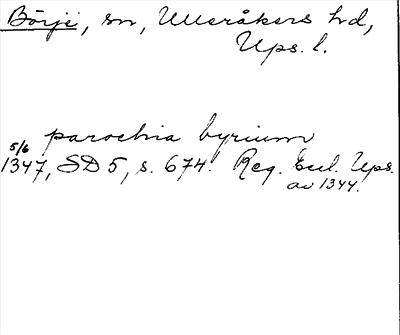 Börje, sn, Ulleråkers hd,
Ups. l.
parochia byrium
5/6
1347, SD 5, s. 674. Reg. Eccl. Ups.
av 1344.